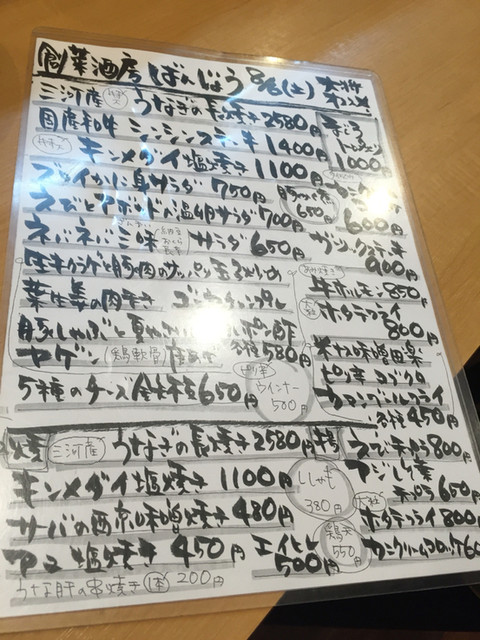 創菜酒房 ばんじょう 8/6(土)
三河産 うなぎの長焼き 2580円
国産和牛 シンシンステーキ 1400円
キンメダイ塩焼き 1100円
ズワイかに身サラダ 750円
えびとアボカドの温卵サラダ 700円
ネバネバ三昧 サラダ 650円
生キクラゲと豚肉の
葉生姜の肉巻き ゴーヤチャンプル
豚しゃぶと夏や
ヤゲン 鶏軟骨 各種 580円
5種のチーズ盛り合わせ 650円
ウインナー 500円
まぐろ
1000円
650円
600円
ガーリックステーキ
900円
牛ホルモン 850円
大粒 ホタテフライ
800円
米ナス味噌田楽
ピリ辛コブクロ
カマンベールフライ
各種 450円
焼 三河産 うなぎの長焼き 2580円
キンメダイ塩焼き 1100円
サバの西京味噌焼き 480円
アユ塩焼き 450円
エイヒレ 500円
うなぎ肝の串焼き 1本 200円
ししゃも 380円
鶏天 550円
えび天ぷら 800円
アジしそ巻
天ぷら 650円
大粒
ホタテフライ 800円
カニクリームコロッケ 60